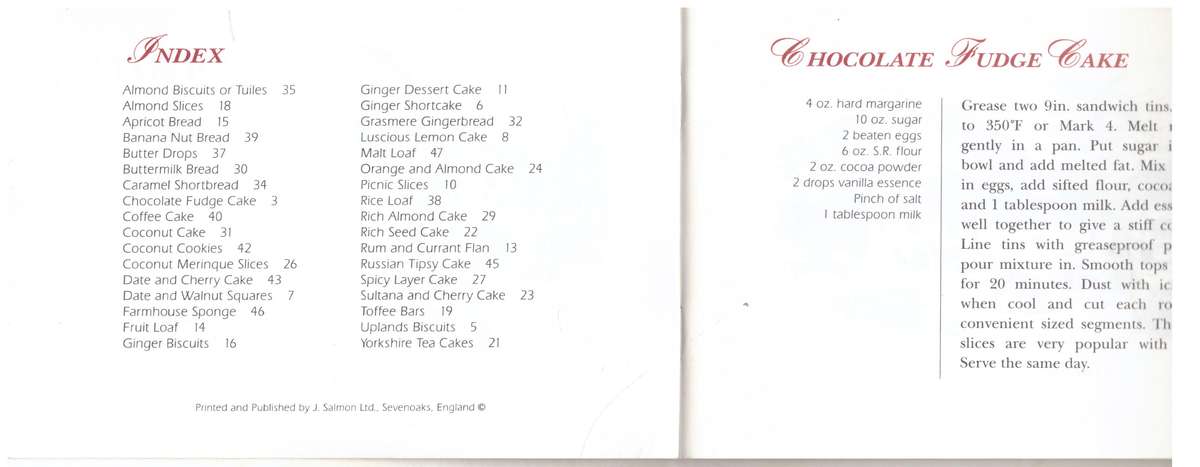 INDEX
Almond Biscuits or Tuiles 35
Almond Slices 18
Apricot Bread 15
Banana Nut Bread 39
Butter Drops 37
Buttermilk Bread 30
Caramel Shortbread 34
Chocolate Fudge Cake 3
Coffee Cake 40
Coconut Cake 31
Coconut Cookies 42
Coconut Meringue Slices 26
Date and Cherry Cake 43
Date and Walnut Squares 7
Farmhouse Sponge 46
Fruit Loaf 14
Ginger Biscuits 16
Ginger Dessert Cake 11
Ginger Shortcake 6
Grasmere Gingerbread 32
Luscious Lemon Cake 8
Malt Loaf 47
Orange and Almond Cake 24
Picnic Slices 10
Rice Loaf 38
Rich Almond Cake 29
Rich Seed Cake 22
Rum and Currant Flan 13
Russian Tipsy Cake 45
Spicy Layer Cake 27
Sultana and Cherry Cake 23
Toffee Bars 19
Uplands Biscuits 5
Yorkshire Tea Cakes 21
Printed and Published by J. Salmon Ltd., Sevenoaks, England ©
CHOCOLATE FUDGE CAKE
4 oz. hard margarine
10 oz. sugar
2 beaten eggs
6 oz. S.R. flour
2 oz. cocoa powder
2 drops vanilla essence
Pinch of salt
1 tablespoon milk
Grease two 9in. sandwich tins.
to 350°F or Mark 4. Melt
gently in a pan. Put sugar
bowl and add melted fat. Mix
in eggs, add sifted flour,
and 1 tablespoon milk. Add
well together to give a stiff
Line tins with greaseproof
pour mixture in. Smooth tops
for 20 minutes. Dust with
when cool and cut each
convenient sized segments.
slices are very popular with
Serve the same day.